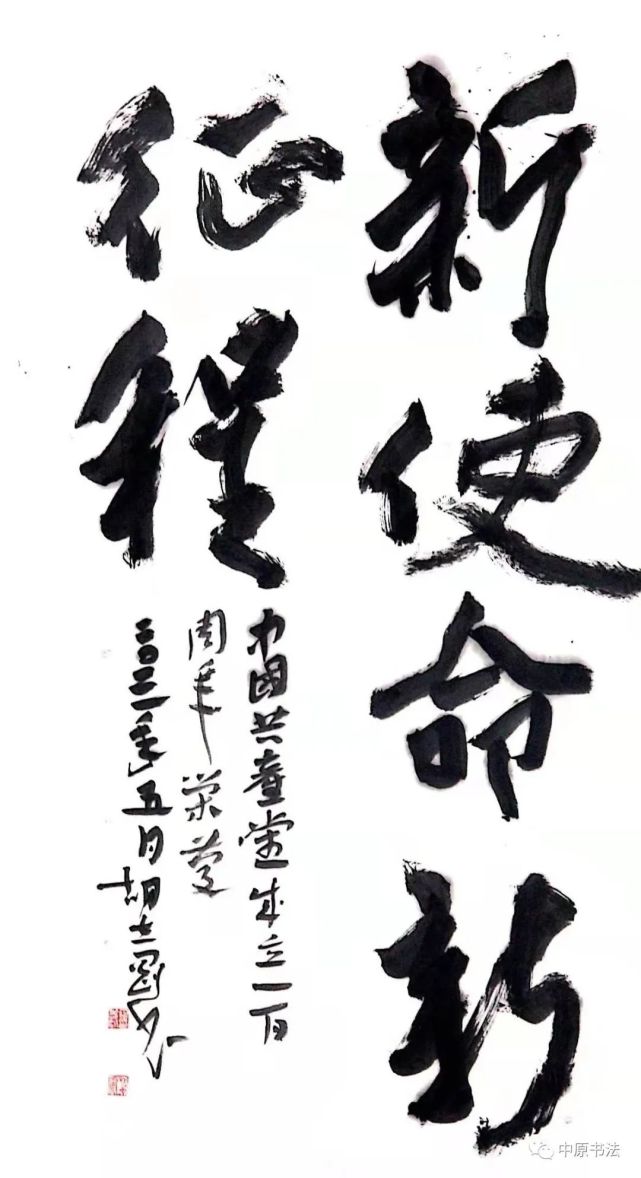 新使命新
征程
中国共产党成立一百
周年荣蔓
二〇二一年五月胡志刚书
中原书法